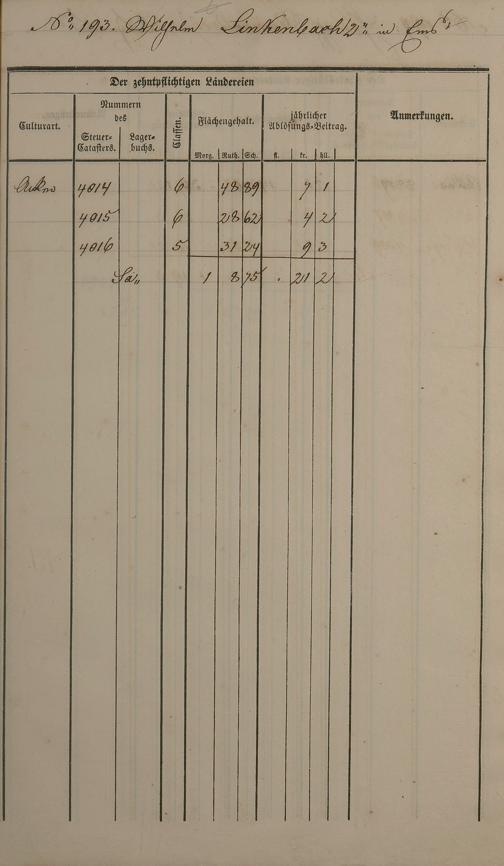 No 193. Wilhelm Linkenbach 2r in Ems
Der zehntpflichtigen Ländereien
Culturart.
Nummern
des
Steuer-
Catasters.
Lager-
buchs.
Classen.
Flächengehalt.
jährlicher
Ablösungs-Beitrag.
Anmerkungen.
Morg. Ruth. Sch. fl. kr. hll.
4014 6 48 89 7 1
4015 6 28 62 4 2
4016 5 31 24 9 3
Sa 1 8 75 . 21 2